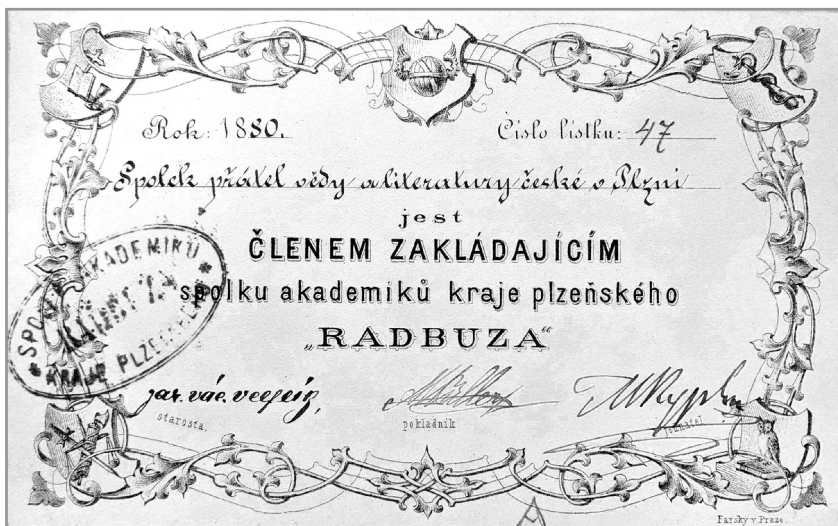 Rok: 1880. Číslo lístku: 47
Spolek přátel vědy a literatury české v Plzni
jest
ČLENEM ZAKLÁDAJÍCÍM
spolku akademiků kraje plzeňského
„RADBUZA“
SPOLEK AKADEMIKŮ
KRAJE PLZEŇSKÉHO
jar. vác.
starosta. pokladník jednatel
Farský v Praze.